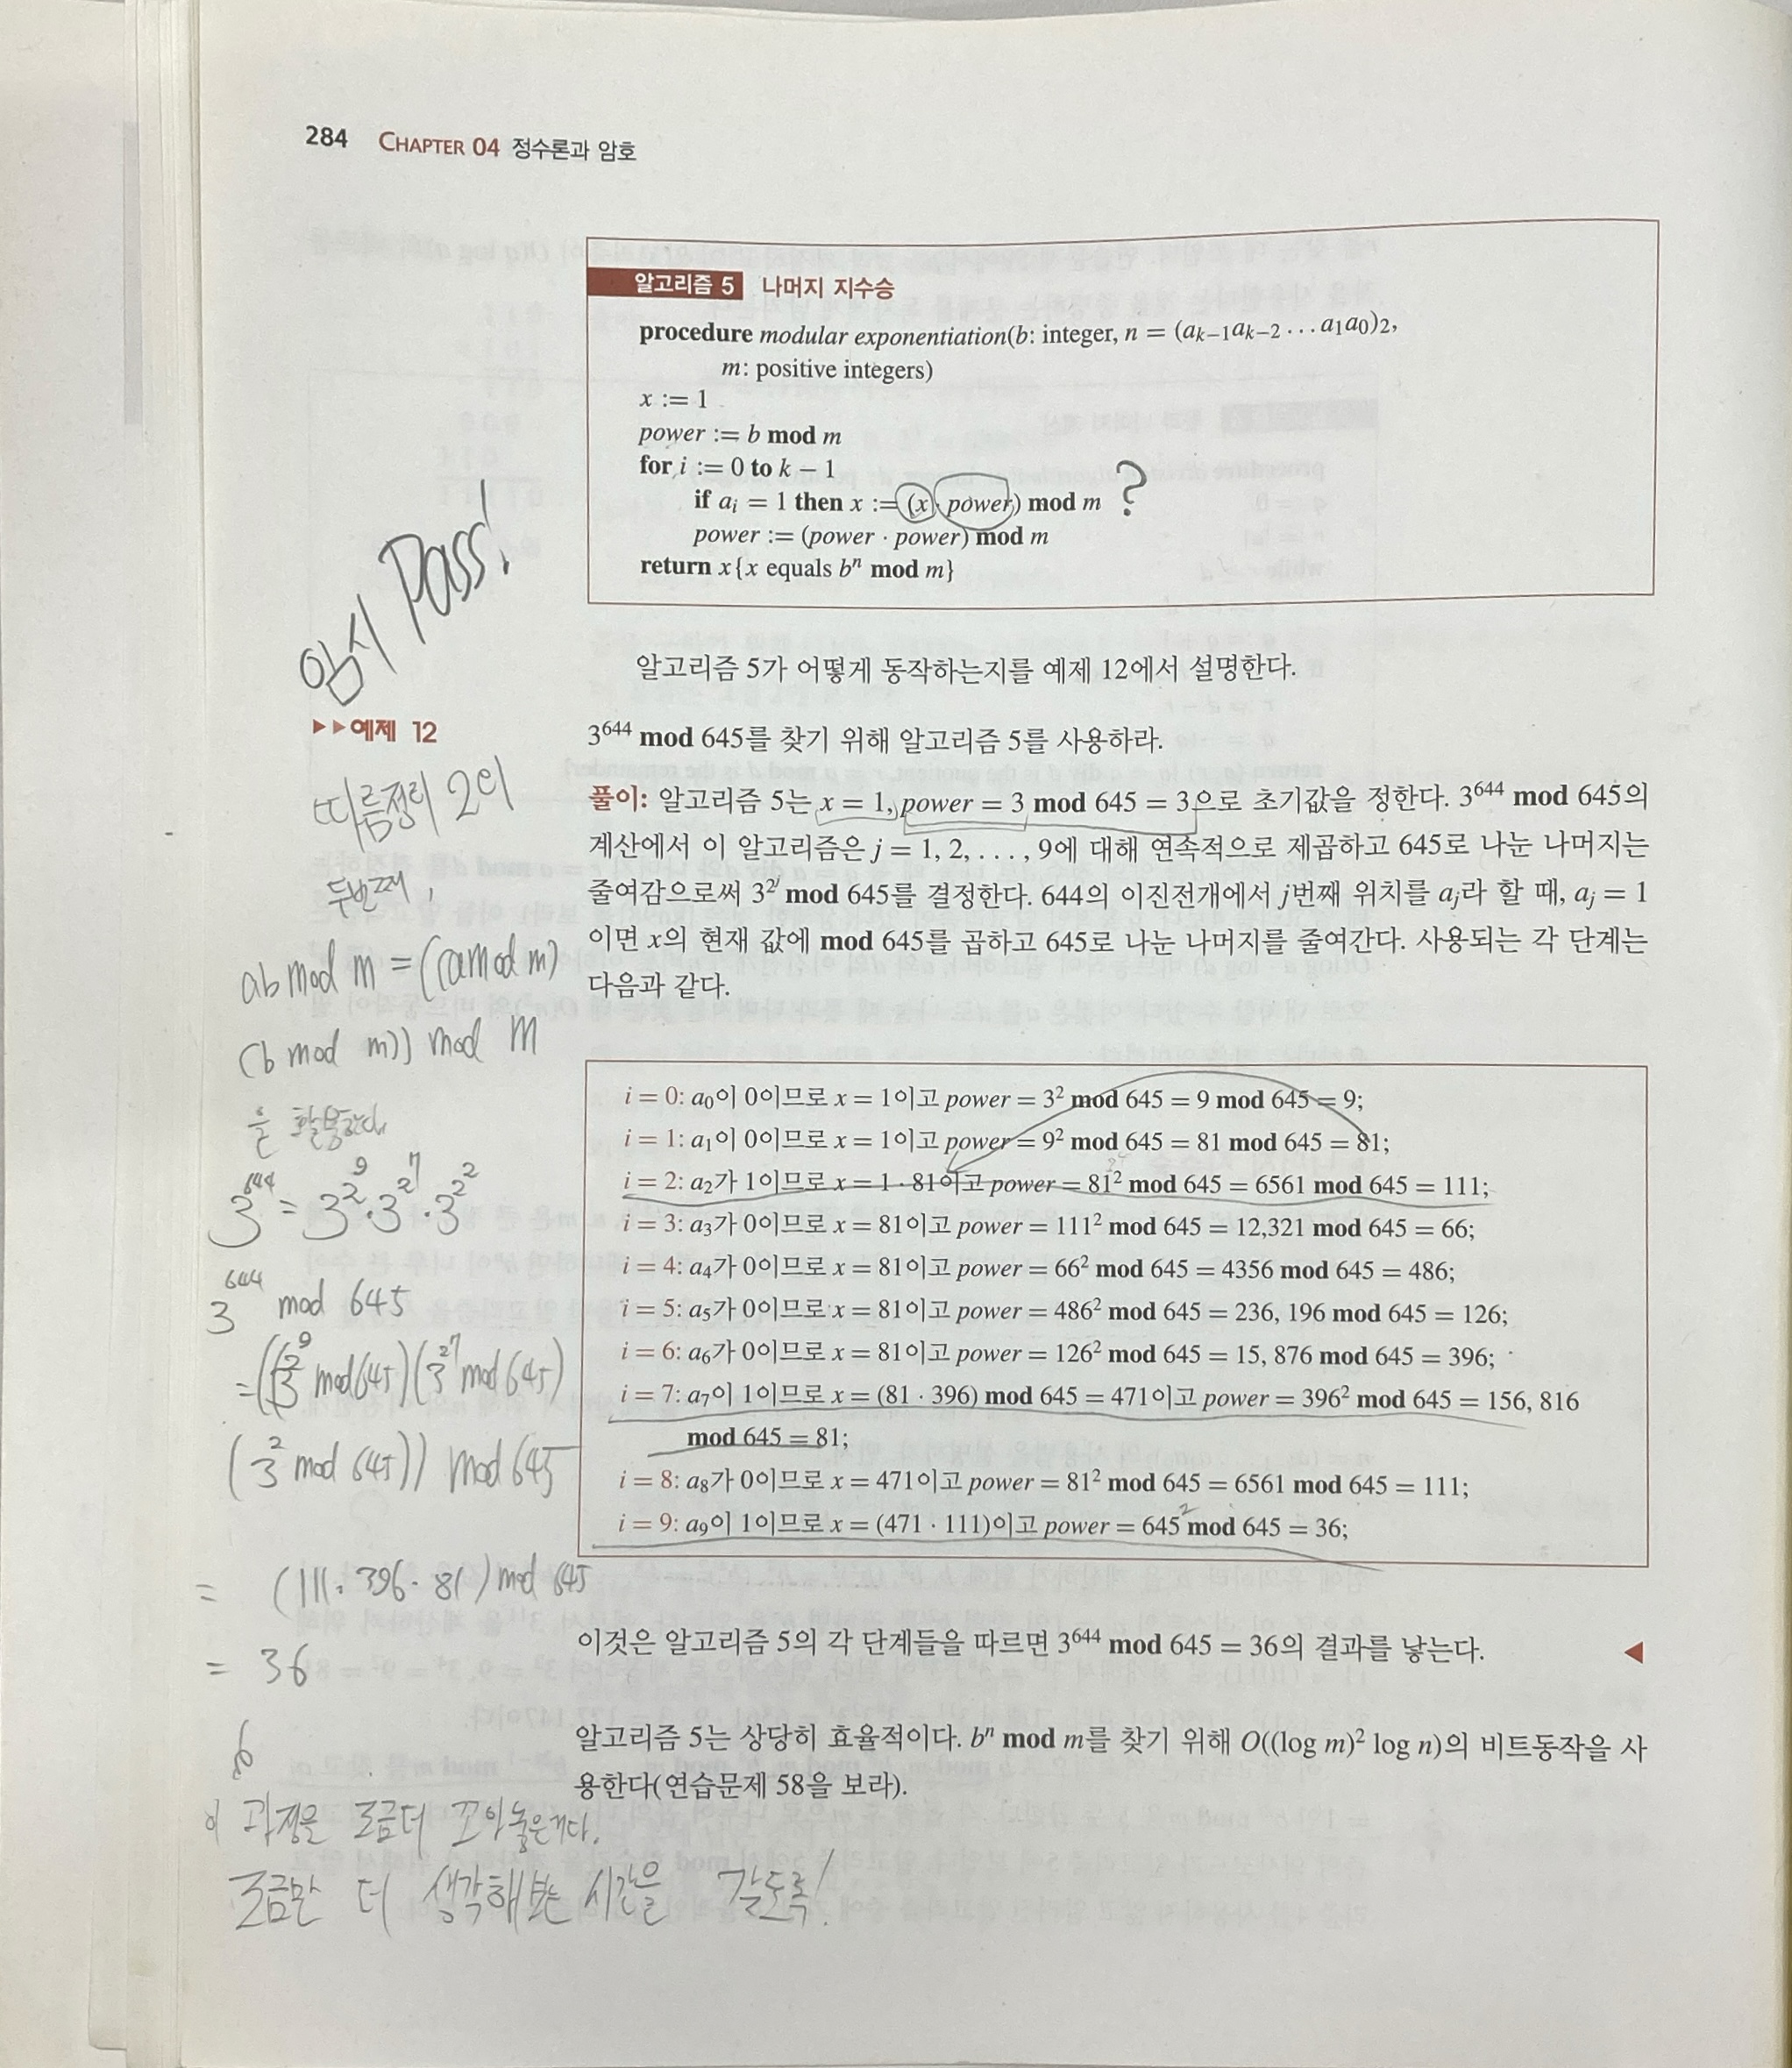 284 CHAPTER 04 정수론과 암호
알고리즘 5 나머지 지수승
procedure modular exponentiation(b: integer, n = (aₖ₋₁aₖ₋₂ . . . a₁a₀)₂,
m: positive integers)
x := 1
power := b mod m
for i := 0 to k − 1
if aᵢ = 1 then x := (x · power) mod m ?
power := (power · power) mod m
return x{x equals bⁿ mod m}
임시 Pass!
알고리즘 5가 어떻게 동작하는지를 예제 12에서 설명한다.
▶▶예제 12
3⁶⁴⁴ mod 645를 찾기 위해 알고리즘 5를 사용하라.
풀이: 알고리즘 5는 x = 1, power = 3 mod 645 = 3으로 초기값을 정한다. 3⁶⁴⁴ mod 645의
계산에서 이 알고리즘은 j = 1, 2, . . . , 9에 대해 연속적으로 제곱하고 645로 나눈 나머지는
줄여감으로써 3^2^j mod 645를 결정한다. 644의 이진전개에서 j번째 위치를 aⱼ라 할 때, aⱼ = 1
이면 x의 현재 값에 mod 645를 곱하고 645로 나눈 나머지를 줄여간다. 사용되는 각 단계는
다음과 같다.
i = 0: a₀이 0이므로 x = 1이고 power = 3² mod 645 = 9 mod 645 = 9;
i = 1: a₁이 0이므로 x = 1이고 power = 9² mod 645 = 81 mod 645 = 81;
i = 2: a₂가 1이므로 x = 1 · 81이고 power = 81² mod 645 = 6561 mod 645 = 111;
i = 3: a₃가 0이므로 x = 81이고 power = 111² mod 645 = 12,321 mod 645 = 66;
i = 4: a₄가 0이므로 x = 81이고 power = 66² mod 645 = 4356 mod 645 = 486;
i = 5: a₅가 0이므로 x = 81이고 power = 486² mod 645 = 236, 196 mod 645 = 126;
i = 6: a₆가 0이므로 x = 81이고 power = 126² mod 645 = 15, 876 mod 645 = 396;
i = 7: a₇이 1이므로 x = (81 · 396) mod 645 = 471이고 power = 396² mod 645 = 156, 816
mod 645 = 81;
i = 8: a₈가 0이므로 x = 471이고 power = 81² mod 645 = 6561 mod 645 = 111;
i = 9: a₉이 1이므로 x = (471 · 111)이고 power = 645² mod 645 = 36;
이것은 알고리즘 5의 각 단계들을 따르면 3⁶⁴⁴ mod 645 = 36의 결과를 낳는다. ◀
알고리즘 5는 상당히 효율적이다. bⁿ mod m를 찾기 위해 O((log m)² log n)의 비트동작을 사
용한다(연습문제 58을 보라).
따름정리 2의
두번째,
ab mod m = ((a mod m)
(b mod m)) mod m
을 활용한다
3⁶⁴⁴ = 3^2^9 · 3^2^7 · 3^2^2
3⁶⁴⁴ mod 645
= ((3^2^9 mod 645)(3^2^7 mod 645)
(3^2^2 mod 645)) mod 645
= (111 · 396 · 81) mod 645
= 36
이 과정을 조금더 꼬아놓은거다.
조금만 더 생각해보는 시간을 갖도록!